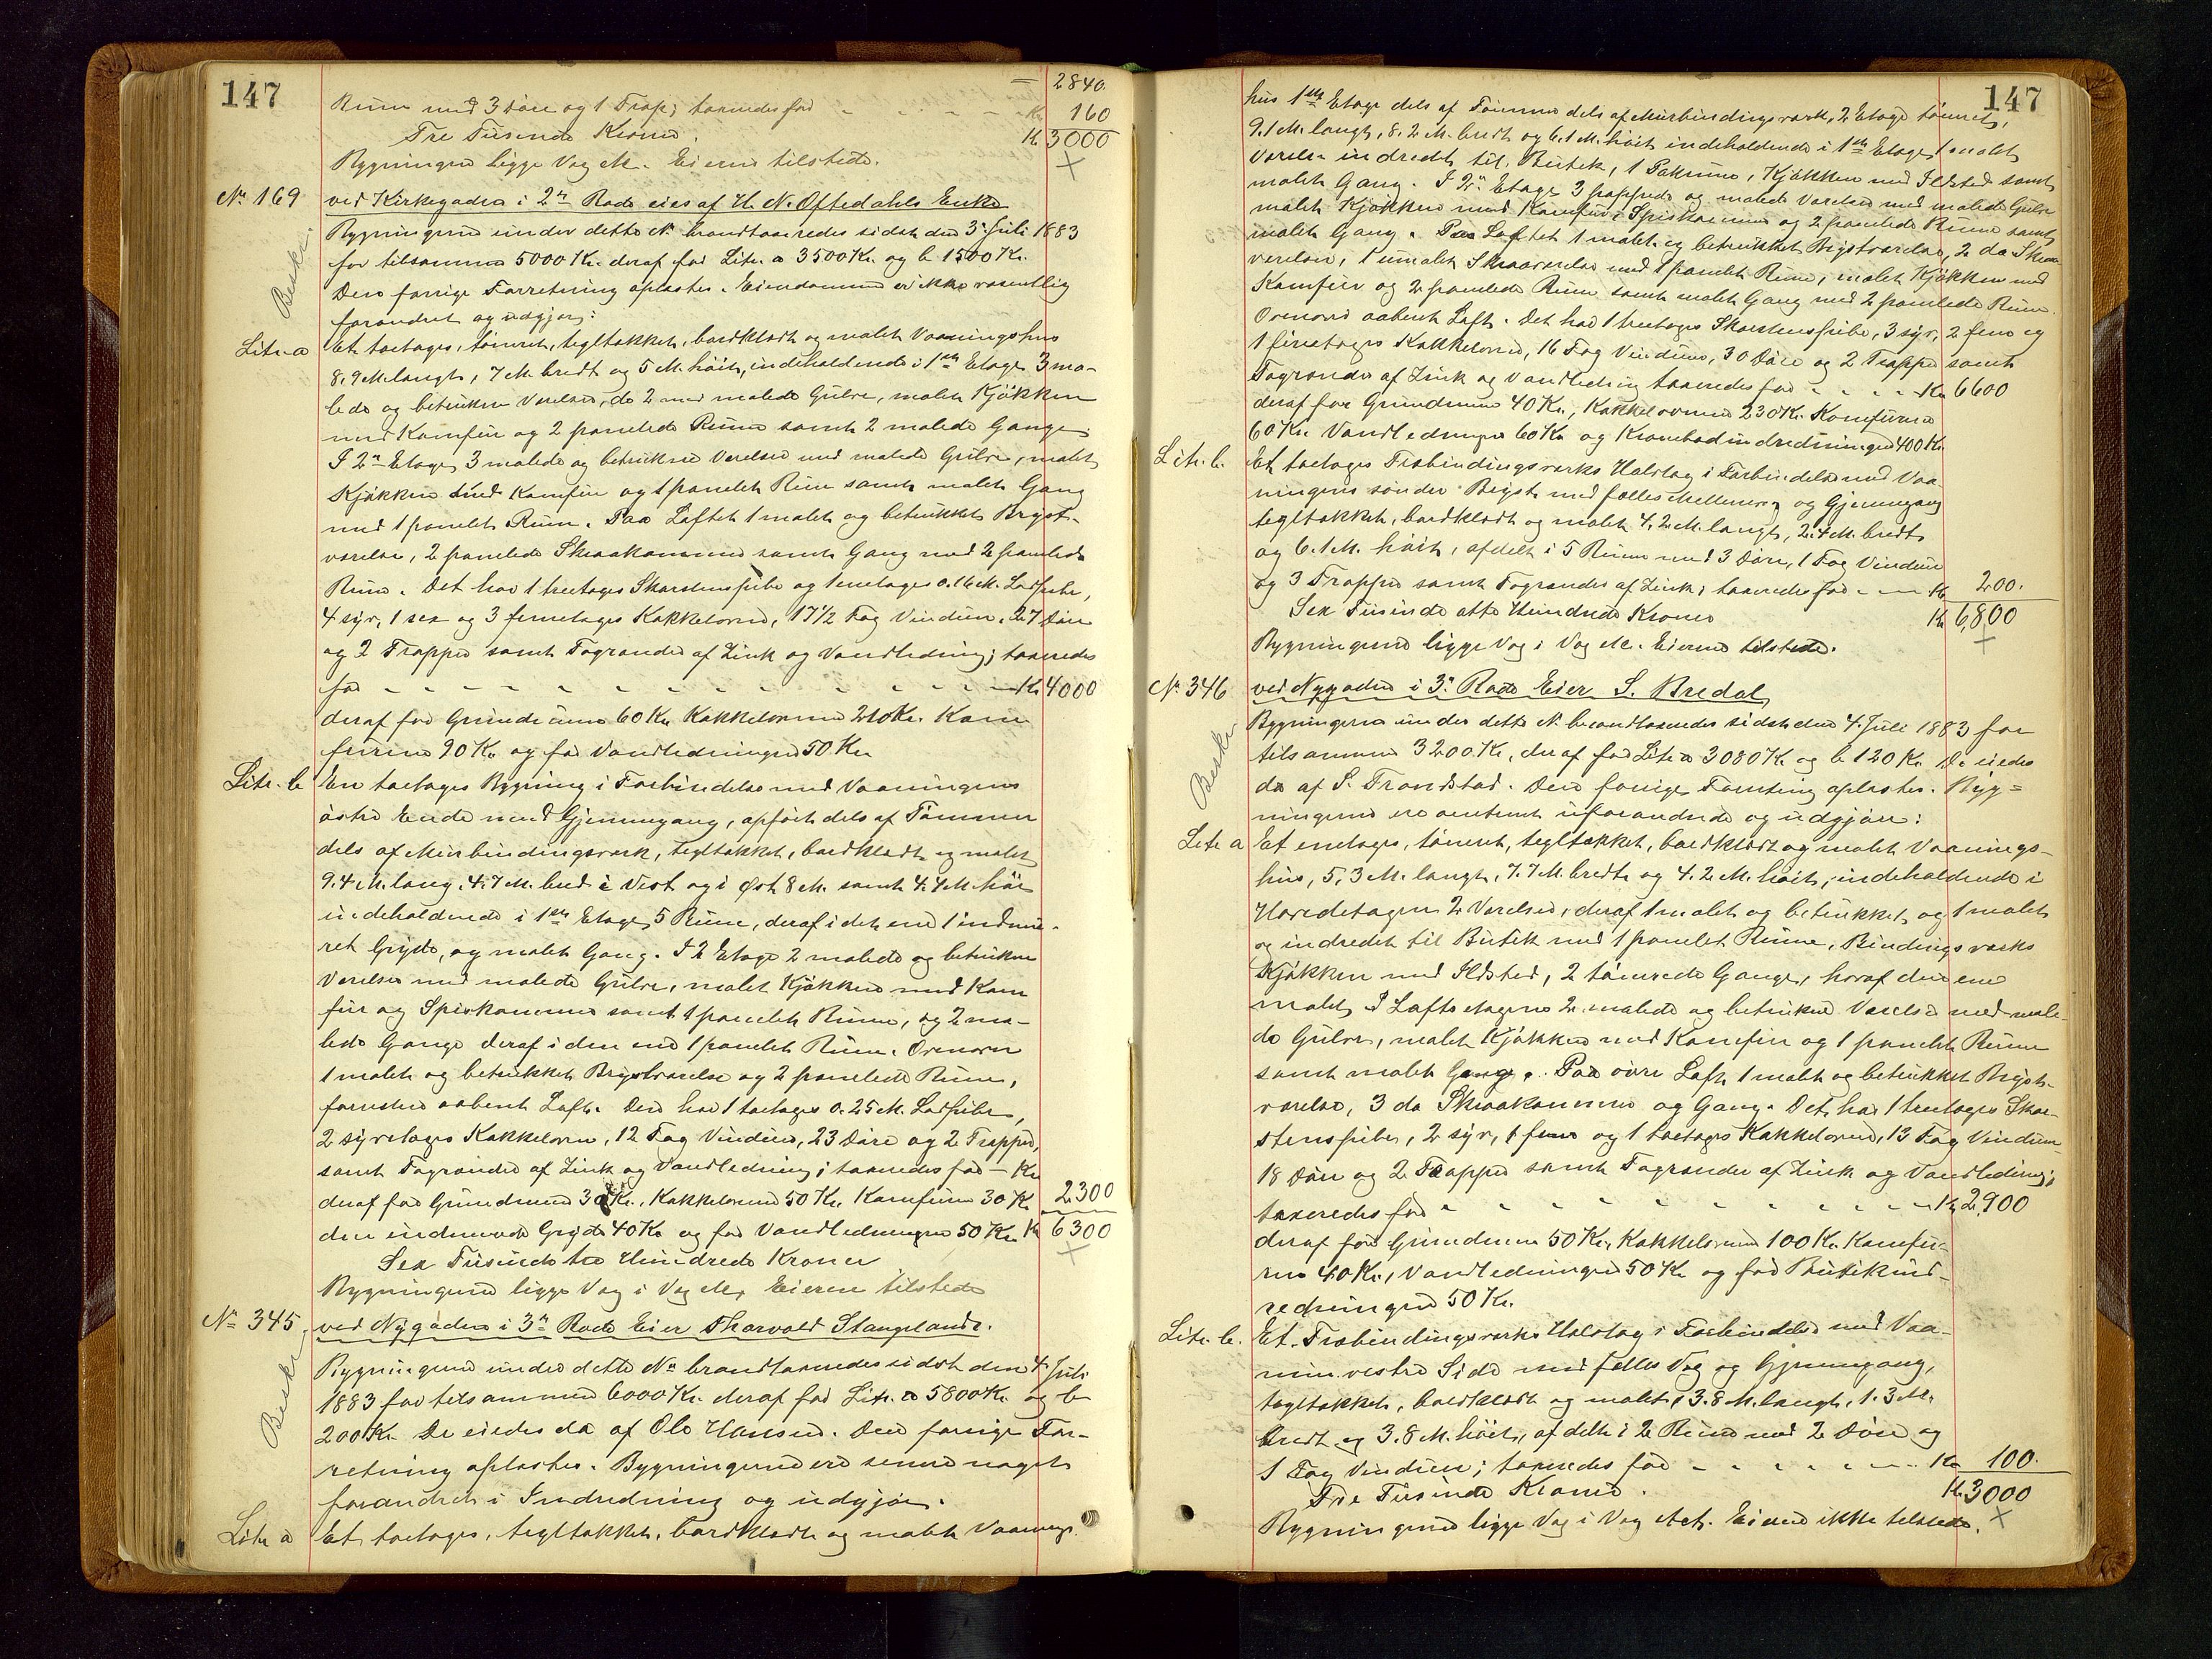 147
2840.
Rum med 3 Döre og 1 Trap; taxeredes for - - - - Kr 160
Tre Tusinde Kroner. Kr 3000
Bygningene ligge Væg etc. Eieren tilstede.
No 169 ved Kirkegaden i 2n Rode eies af H. N. Oftedahls Enke
Beskr. Bygningerne under dette No brandtaxeredes sidst den 3. Juli 1883
for tilsammen 5000 Kr. deraf for Litr. a 3500 Kr. og b 1500 Kr.
Den forrige Forretning oplæstes. Eiendommen er ikke væsentlig
forandret og udgjør:
Litr. a Et toetages, tömret, tegltækket, bordklædt og malet Vaaningshus
8,9 M. langt, 7 M. bredt og 5 M. höit, indeholdende i 1ste Etage 3 ma-
lede og betrukne Værelser, de 2 med malede Gulve, malet Kjökken
med Komfur og 2 panelede Rum samt 2 malede Gange.
I 2n Etage 3 malede og betrukne Værelser med malede Gulve, malet
Kjökken med Komfur og 1 panelet Rum samt malet Gang
med 1 panelet Rum. Paa Loftet 1 malet og betrukket Bryst-
værelse, 2 panelede Skraakammere samt Gang med 2 panelede
Rum. Det har 1 treetages Skorstenspibe og 1 enetages 0.16 M. Lodpibe,
4 syv, 1 sex og 3 femetages Kakkelovne, 17 1/2 Fag Vinduer, 27 Döre
og 2 Trapper samt Tagrender af Zink og Vandledning; taxeredes
for - - - - - - - - - - - - - Kr 4000
deraf for Grundmuren 60 Kr. Kakkelovnene 210 Kr. Kom-
furene 90 Kr. og for Vandledningen 50 Kr.
Litr. b En toetages Bygning i Forbindelse med Vaaningens
östre Ende med Gjennemgang, opfört dels af Tömmer
dels af Murbindingsværk, tegltækket, bordklædt og malet
9.4 M. lang, 4.7 M. bred i Vest og i Öst 8 M. samt 4.4 M. höi
indeholdende i 1ste Etage 5 Rum, deraf i det ene 1 indmu-
ret Gryde, og malet Gang. I 2 Etage 2 malede og betrukne
Værelser med malede Gulve, malet Kjökken med Kom-
fur og Spiskammer samt 1 panelet Rum, og 2 ma-
lede Gange deraf i den ene 1 panelet Rum. Ovenover
1 malet og betrukket Brystværelse og 2 panelede Rum,
forresten aabent Loft. Den har 1 toetages 0.25 M. Lodpibe,
2 syvetages Kakkelovne, 12 Fag Vinduer, 23 Döre og 2 Trapper,
samt Tagrender af Zink og Vandledning; taxeredes for - Kr
deraf for Grundmuren 30 Kr. Kakkelovnene 50 Kr. Komfuren 30 Kr. 2300
den indmurede Gryde 40 Kr. og for Vandledningen 50 Kr. Kr 6300
Sex Tusinde tre Hundrede Kroner
Bygningerne ligge Væg i Væg etc. Eieren tilstede
No 345 ved Nygaden i 3n Rode Eier Thorvald Stangeland.
Beskr. Bygningerne under dette No brandtaxeredes sidst den 4. Juli
1883 for tilsammen 6000 Kr. deraf for Litr. a 5800 Kr. og b
200 Kr. De eiedes da af Ole Hansen. Den forrige For-
retning oplæstes. Bygningerne ere senere noget
forandret i Indredning og udgjör.
Litr a Et toetages, tegltækket, bordklædt og malet Vaanings-
147
hus 1ste Etage dels af Tömmer dels af Murbindingsværk, 2 Etage tömret,
9.1 M. langt, 8.2 M. bredt og 6.1 M. höit indeholdende i 1ste Etage 1 malet
Værelse indredet til Butik, 1 Pakrum, Kjökken med Ildsted samt
malet Gang. I 2n Etage 3 pappede og malede Værelser med malede Gulve
malet Kjökken med Komfur, Spiskammer og 2 panelede Rum samt
malet Gang. Paa Loftet 1 malet og betrukket Brystværelse, 2 do Skraa-
værelser, 1 umalet Skraaværelse med 1 panelet Rum, malet Kjökken med
Komfur og 2 panelede Rum samt malet Gang med 2 panelede Rum.
Ovenover aabent Loft. Det har 1 treetages Skorstenspibe, 3 syv, 2 fem og
1 fireetages Kakkelovne, 16 Fag Vinduer, 30 Döre og 2 Trapper samt
Tagrender af Zink og Vandledning taxeredes for - - - - Kr 6600
deraf for Grundmuren 40 Kr., Kakkelovnene 230 Kr. Komfurene
60 Kr. Vandledningen 60 Kr. og Krambodindredningen 400 Kr.
Litr. b. Et toetages Træbindingsværks Halvtag i Forbindelse med Vaa-
ningens söndre Bryst med fælles Mellemvæg og Gjennemgang
tegltækket, bordklædt og malet 4.2 M. langt, 2.4 M. bredt
og 6.1 M. höit, afdelt i 5 Rum med 3 Döre, 1 Fag Vinduer
og 3 Trapper samt Tagrender af Zink; taxeredes for - - - Kr 200.
Sex Tusinde otte Hundrede Kroner Kr 6,800
Bygningerne ligge Væg i Væg etc. Eieren tilstede.
No 346 ved Nygaden i 3n Rode Eier S. Bredal
Beskr Bygningerne under dette No brandtaxeredes sidst den 4. Juli 1883 for
tilsammen 3200 Kr, deraf for Litr a 3080 Kr og b 120 Kr. De eiedes
da af S. Trondstad. Den forrige Forretning oplæstes. Byg-
ningerne ere omtrent uforandrede og udgjöre:
Litr a Et enetages, tömret, tegltækket, bordklædt og malet Vaanings-
hus, 5,3 M. langt, 7.7 M. bredt og 4.2 M. höit, indeholdende i
Hovedetagen 2 Værelser, deraf 1 malet og betrukket og 1 malet
og indredet til Butik med 1 panelet Rum, Bindingsværks
Kjökken med Ildsted, 2 tömrede Gange, hvoraf den ene
malet. I Loftsetagen 2 malede og betrukne Værelser med male-
de Gulve, malet Kjökken med Komfur og 1 panelet Rum
samt malet Gang. Paa övre Loft 1 malet og betrukket Bryst-
værelse, 3 do Skraakammere og Gang. Det har 1 treetages Skor-
stenspibe, 2 syv, 1 fem og 1 toetages Kakkelovne, 13 Fag Vinduer
18 Döre og 2 Trapper samt Tagrender af Zink og Vandledning;
taxeredes for - - - - - - - - - - - Kr 2,900
deraf for Grundmuren 50 Kr, Kakkelovnene 100 Kr. Komfu-
ren 40 Kr., Vandledningen 50 Kr og for Butikind-
redningen 50 Kr.
Litr. b. Et Træbindingsværks Halvtag i Forbindelse med Vaa-
nin. vestre Side med fælles Væg og Gjennemgang,
tegltækket, bordklædt og malet, 3.8 M. langt, 1.3 M.
bredt og 3.8 M. höit, afdelt i 2 Rum med 2 Döre og
1 Fag Vinduer; taxeredes for - - - - - - Kr 100.
Tre Tusinde Kroner. Kr 3000
Bygningerne ligge Væg i Væg etc. Eieren ikke tilstede.